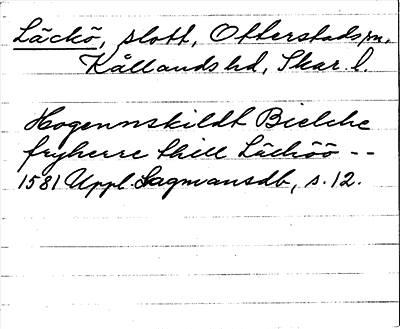 Läckö, slott, Otterstads sn,
Kållands hd, Skar. l.
Hogennskildt Bielche
fryherre thill Läcköö --
1581 Uppl. Lagmansdb, s. 12.